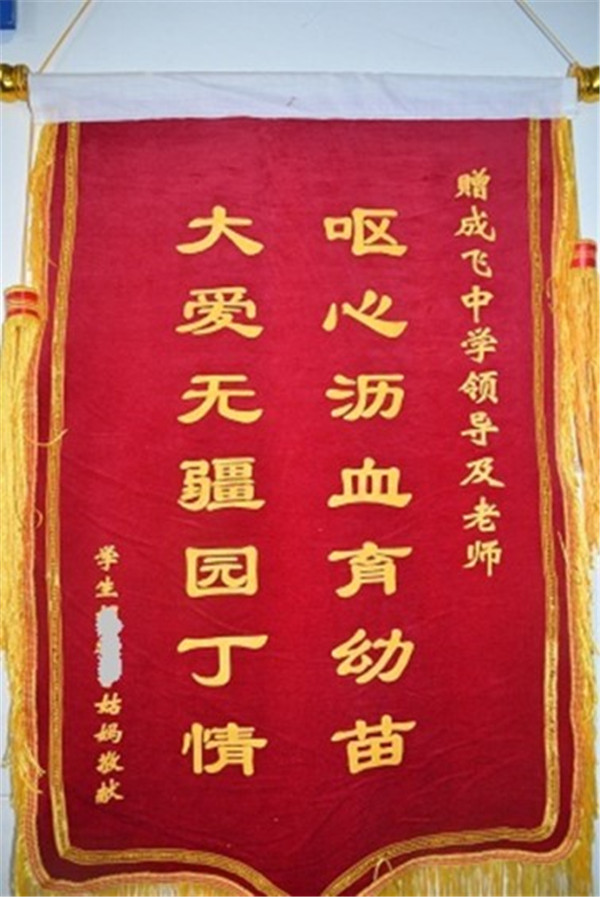 赠成飞中学领导及老师
呕心沥血育幼苗
大爱无疆园丁情
学生 姑妈敬献